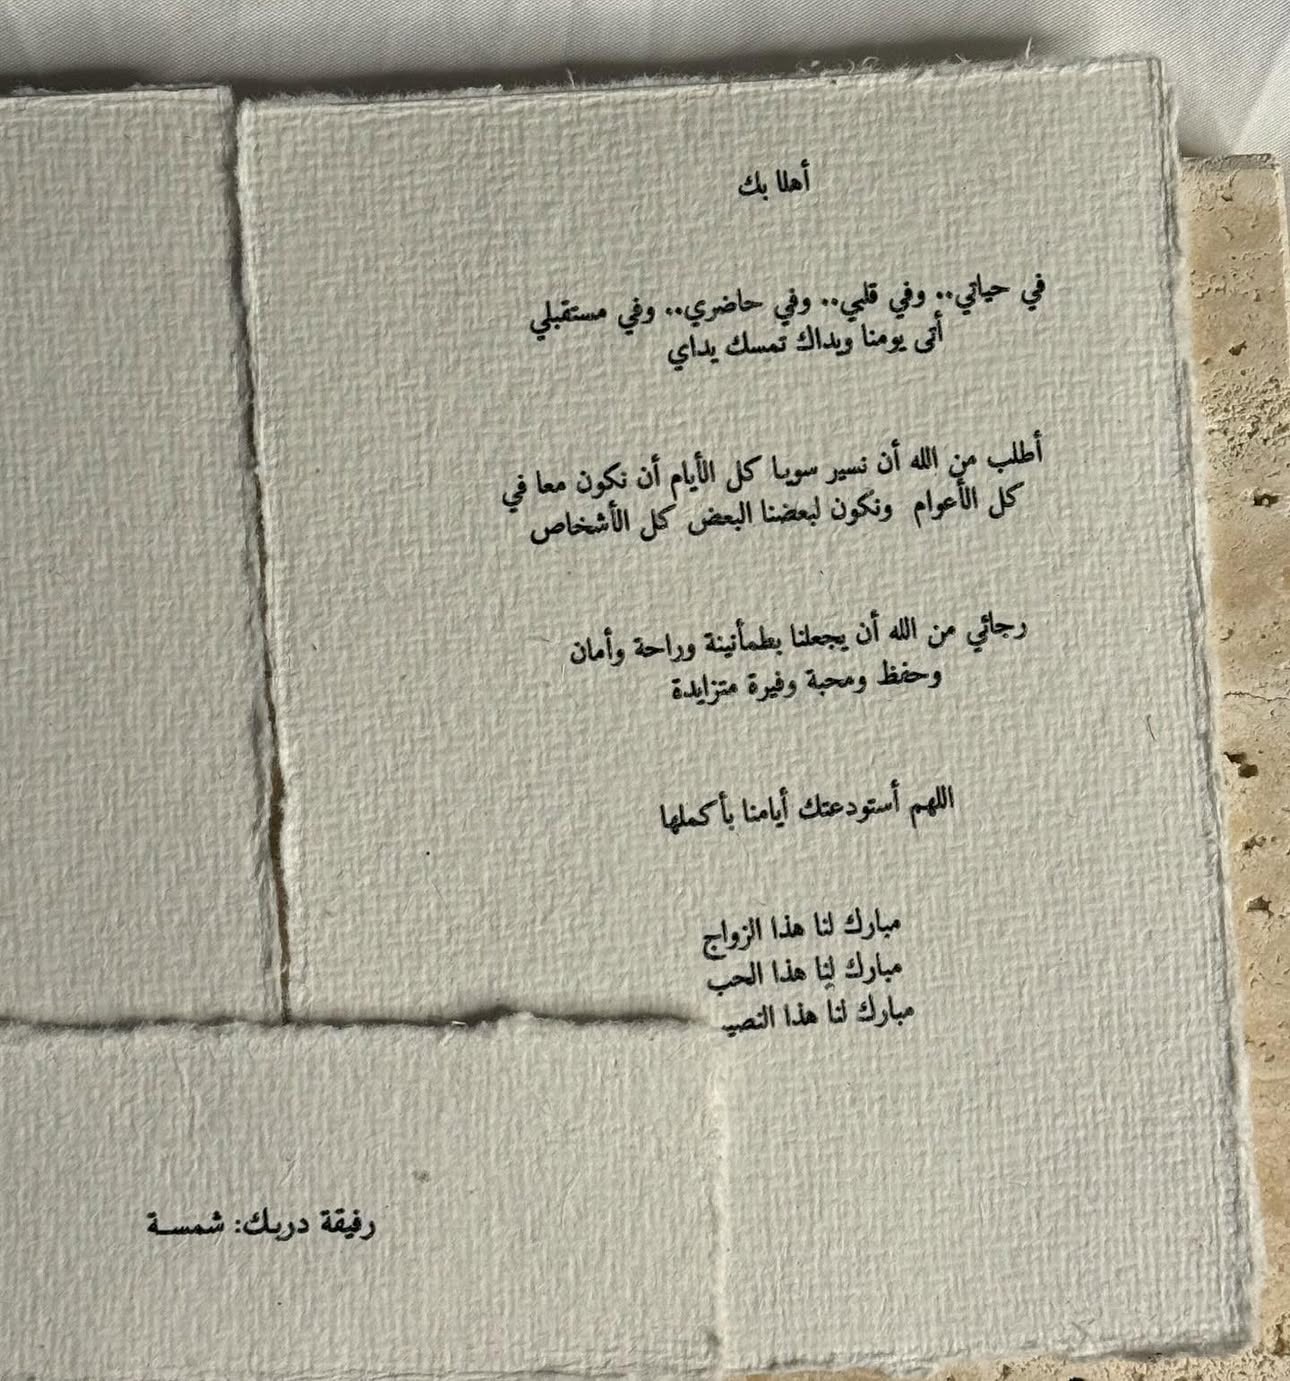 أهلا بك
في حياتي.. وفي قلبي.. وفي حاضري.. وفي مستقبلي
أتى يومنا ويداك تمسك يداي
أطلب من الله أن نسير سويا كل الأيام أن نكون معا في
كل الأعوام ونكون لبعضنا البعض كل الأشخاص
رجائي من الله أن يجعلنا بطمأنينة وراحة وأمان
وحفظ ومحبة وفيرة متزايدة
اللهم أستودعتك أيامنا بأكملها
مبارك لنا هذا الزواج
مبارك لنا هذا الحب
مبارك لنا هذا
رفيقة دربك: شمسة